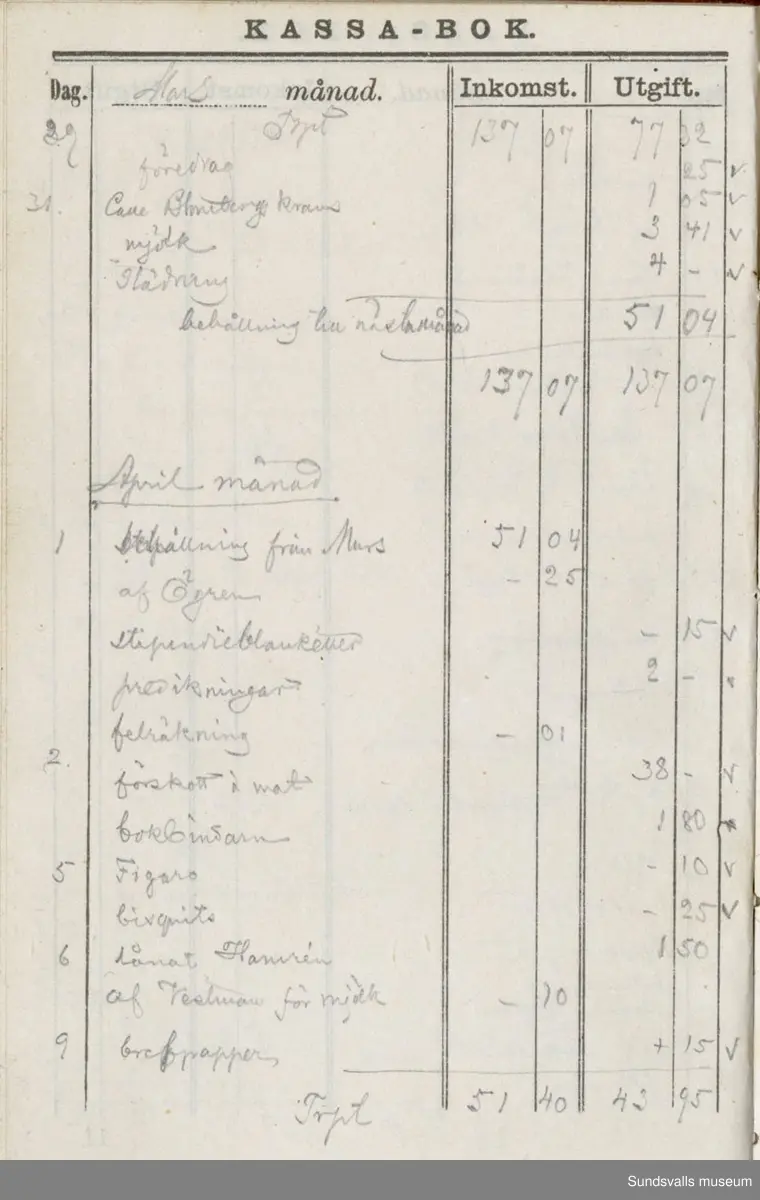 KASSA-BOK.
Dag. Mars månad. Inkomst. Utgift.
29 Trpt 137 07 77 32
föredrag 25 v
31. Blombergs krans 1 05 v
mjölk 3 41 v
Städning 4 - v
behållning till nästa månad 51 04
137 07 137 07
April månad
1 Behållning från Mars 51 04
af Ögren - 25
Stipendieblanketter - 15 v
predikningar 2 -
felräkning - 01
2. förskott å mat 38 - v
bokbindarn 1 80
5 Figaro - 10 v
bisquits - 25 v
6 lånat Hamrén 1 50
af Vestman för mjölk - 10
9 brefpapper + 15 v
Trpt 51 40 43 95
Sundsvalls museum